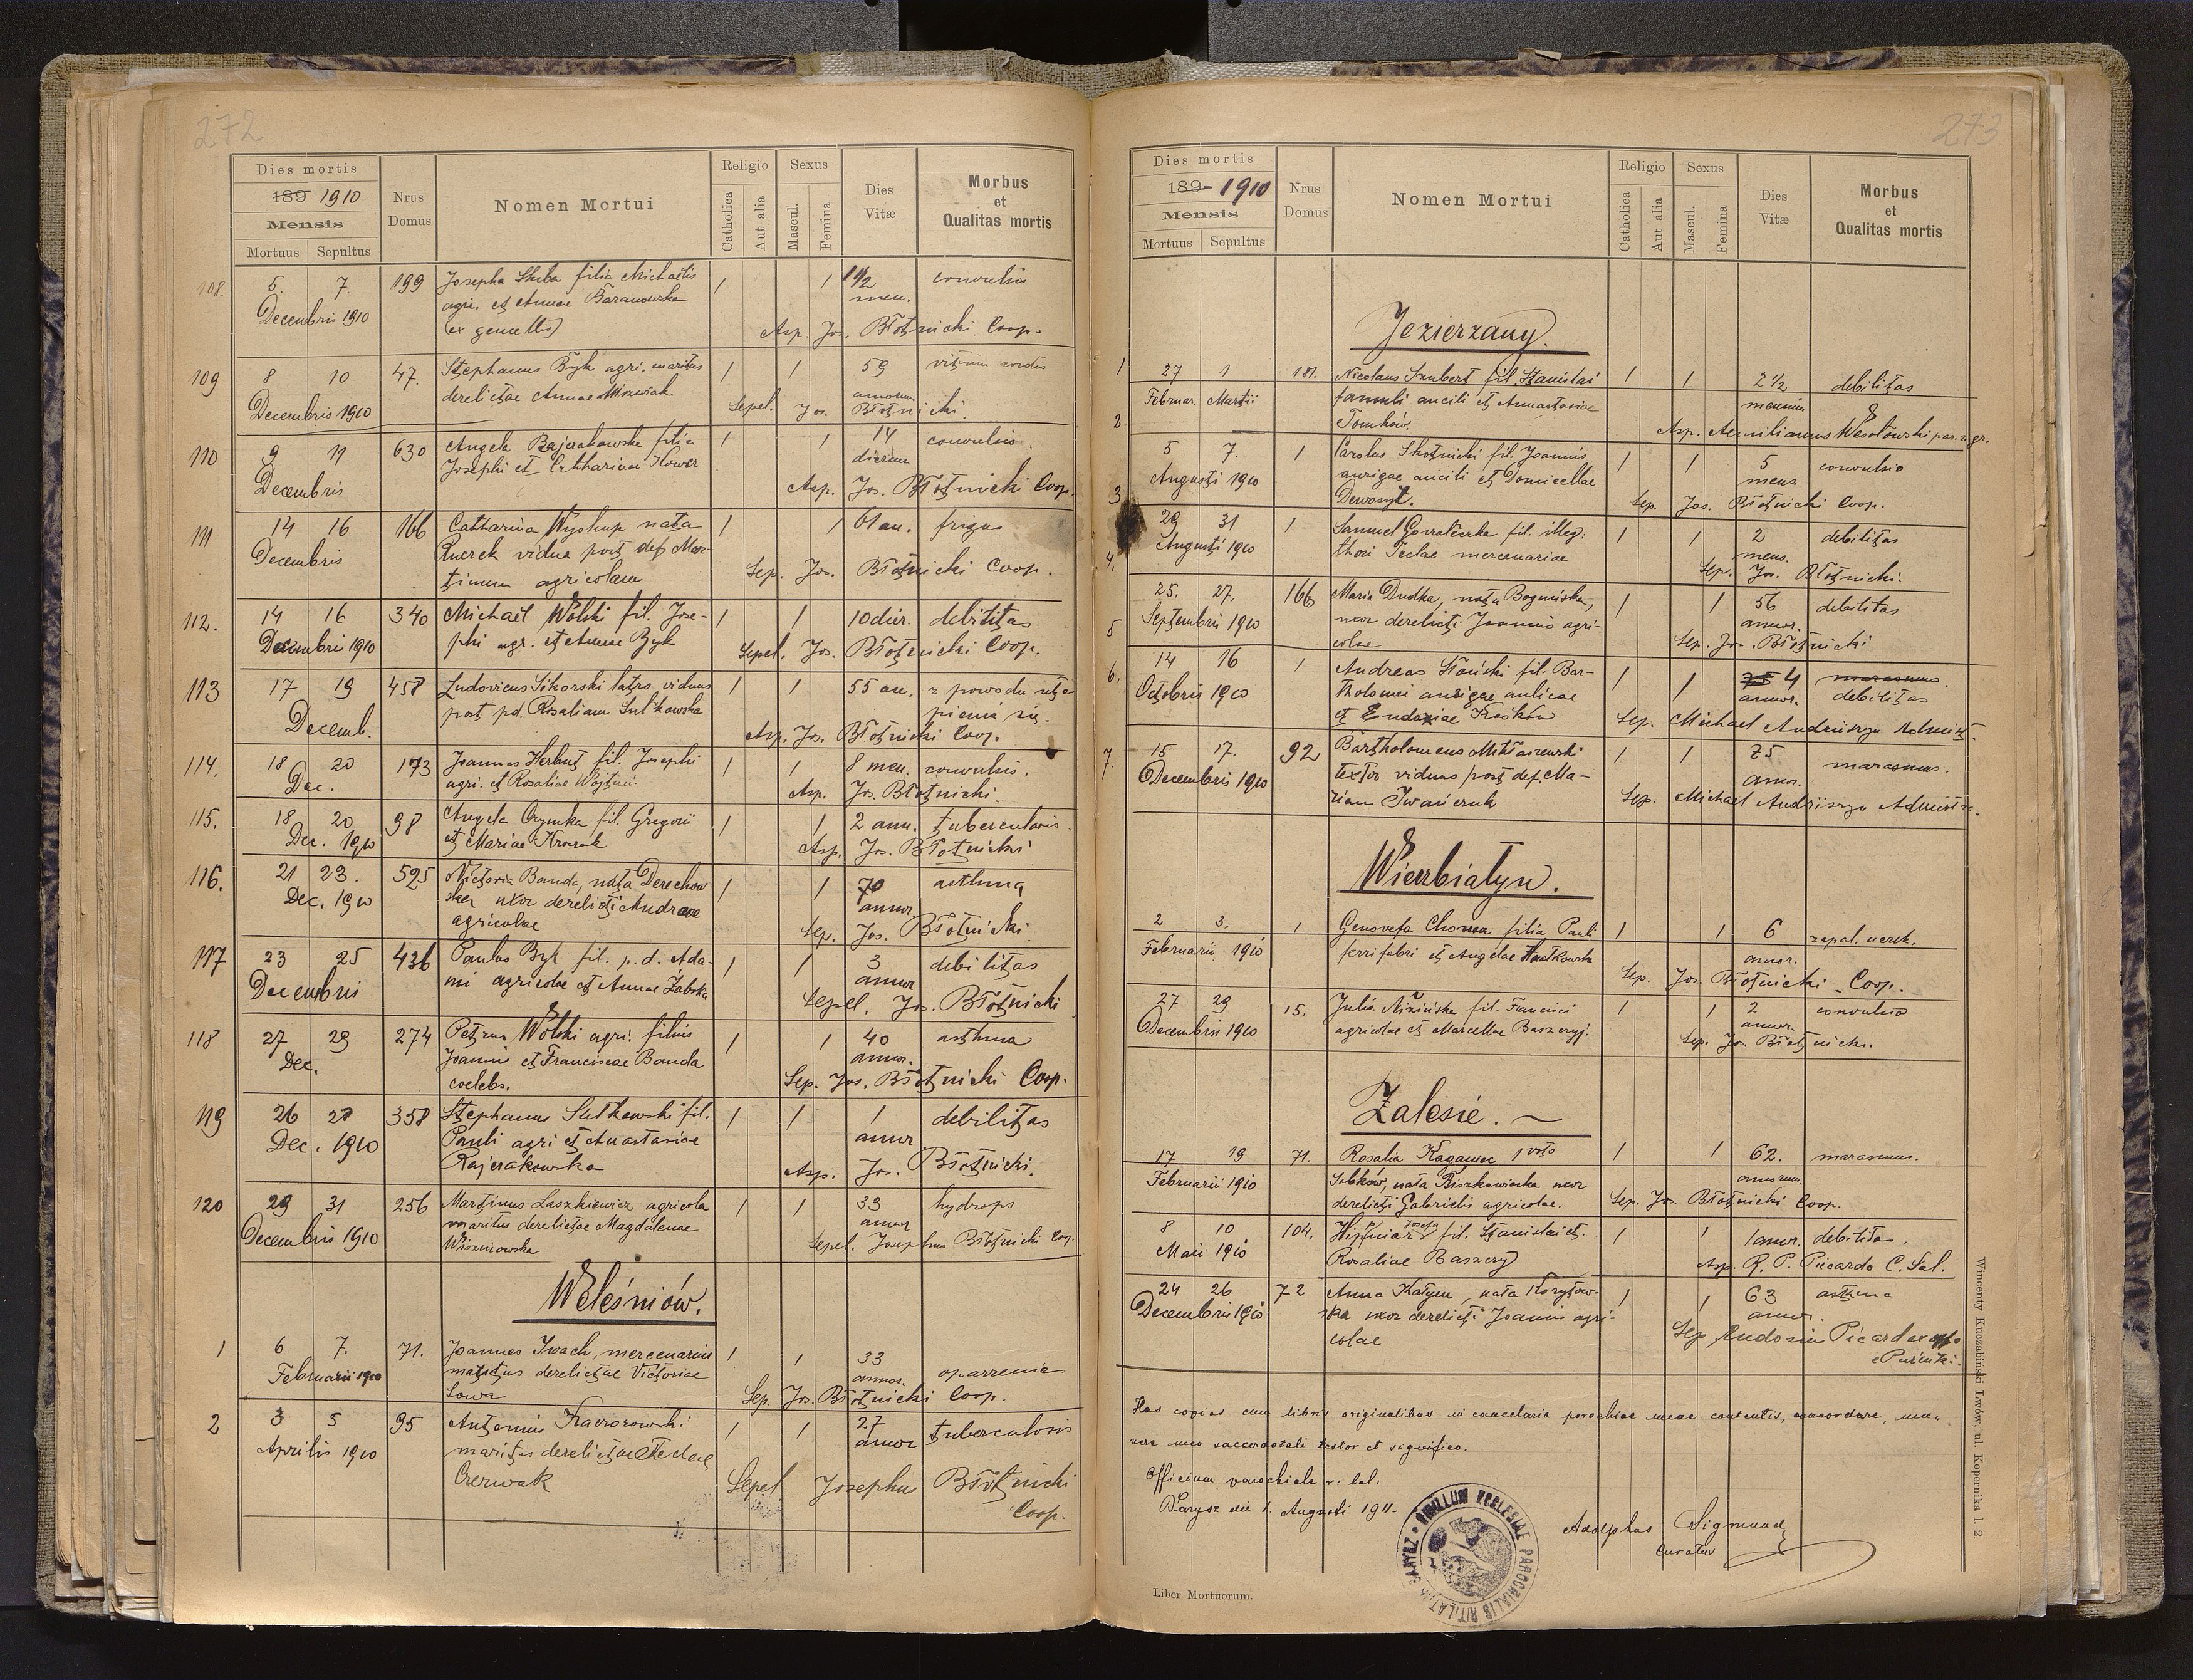 272
Dies mortis
189 1910
Mensis
Mortuus Sepultus
Nrus Domus
Nomen Mortui
Religio
Catholica
Aut alia
Sexus
Mascul.
Femina
Dies Vitæ
Morbus et Qualitas mortis
108. 5. 7. 199 Josepha Skiba filia Michaelis 1 1 1 1/2 convulsio
Decembris 1910 agri. et Annae Baranowska men.
(ex gemellis) Asp. Jos. Błotnicki Coop.
109 8 10 47. Stephanus Byk agri. maritus 1 1 59 vitium cordis
Decembris 1910 derelictae Annae annorum
Sepel. Jos. Błotnicki.
110 9 11 630 Angela Bajerakowska filia 1 1 14 convulsio
Decembris Josephi et Catharina dierum
Asp. Jos. Błotnicki Coop.
111 14 16 166 Catharina Wyskup nata 1 1 61 an. frigus
Decembris vidua post def. Mar-
tinum agricolam Sep. Jos. Błotnicki Coop.
112. 14 16 340 Michael Wolski fil. Jose- 1 1 10 dier. debilitas
Decembris 1910 phi agr. et Annae Byk Sepel. Jos. Błotnicki Coop.
113 17 19 458 Ludovicus Sikorski viduus 1 1 55 an. z powodu uto-
Decemb. post pd. Rosaliam Sutkowska pienia się.
Asp. Jos. Błotnicki Coop.
114. 18 20 173 Joannes Herbut fil. Josephi 1 1 8 men. convulsis.
Dec. agri. et Rosaliae Asp. Jos. Błotnicki.
115. 18 20 98 Angela fil. Gregorii 1 1 2 ann. tuberculosis
Dec. 1910 et Mariae Asp. Jos. Błotnicki
116. 21 23. 525 Victoria Banda, nata Derechow 1 1 70 asthma
Dec. 1910 ska uxor derelicti Andreae annor
agricolae Sep. Jos. Błotnicki
117 23 25 436 Paulus Byk fil. p. d. Ada- 1 1 3 debilitas
Decembris mi agricolae et Annae Żabska annor
Sepel. Jos. Błotnicki
118 27 29 274 Petrus Wolski agri. filius 1 1 40 asthma
Dec. Joanni et Franciscae Banda annor.
coelebs. Sep. Jos. Błotnicki Coop.
119 26 28 358 Stephanus Sutkowski fil. 1 1 1 debilitas
Dec. 1910 Pauli agri et Anastasiae annor
Rajerakowska Asp. Jos. Błotnicki.
120 29 31 256 Martinus Laszkiewicz agricola 1 1 33 hydrops
Decembris 1910 maritus derelictae Magdalenae annor
Wiszniowska Sepel. Josephus Błotnicki Coop.
Weleśniów.
1 6 7. 71. Joannes Iwach, mercenarius 1 1 33 oparzenie
Februarii 1910 maritus derelictae Victoriae annor.
Sowa Sep. Jos. Błotnicki Coop.
2 3 5 95 Antonius 1 1 27 tuberculosis
Aprilis 1910 maritus derelictae Teclae annor
Czerwak Sepel Josephus Błotnicki
Coop.
273
Dies mortis
189- 1910
Mensis
Mortuus Sepultus
Nrus Domus
Nomen Mortui
Religio
Catholica
Aut alia
Sexus
Mascul.
Femina
Dies Vitæ
Morbus et Qualitas mortis
Jezierzany.
1 27 1 181. Nicolaus Szubert fil. Stanislai 1 1 2 1/2 debilitas
Februar. Martii famuli aucili et Annastasiae mensium
Tomków. Asp. Aemilianus Wesołowski par. r. gr.
2 5 7. 1 Carolus Skotnicki fil. Joannis 1 1 5 convulsio
Augusti 1910 aurigae aucili et Domicellae mens
Sep. Jos. Błotnicki Coop.
3 29 31 1 Samuel fil. illeg: 1 1 2 debilitas
Augusti 1910 thori Teclae mercenariae mens.
Sep. Jos. Błotnicki.
4. 25. 27. 166 Maria Dudka, nata Boguńska, 1 1 56 debilitas
Septembris 1910 uxor derelicti Joannis agri- annor.
colae Sep. Jos. Błotnicki
5 14 16 1 Andreas Słoński fil. Bar- 1 1 75 4 marasmus
Octobris 1910 tholomei aurigae aulicae annor. debilitas
et Eudoxiae Sep. Michael Andriiszyn Administ.
6. 7. 15 17. 92 Bartholomeus Mikłaszewski 1 1 75 marasmus.
Decembris 1910 textor viduus post def. Ma- annor.
riam Iwańczuk Sep. Michael Andriiszyn Administr.
Wierzbiatyn.
2 3. 1 Genovefa filia Pauli 1 1 6 zapal. nerek.
Februarii 1910 ferri fabri et Angelae annor.
Sep. Jos. Błotnicki Coop.
27 29 15. Julia Nizińska fil. Francisci 1 1 2 convulsio
Decembris 1910 agricolae et Marcellae annor.
Sep. Jos. Błotnicki.
Zalesie. ~
17 19 71. Rosalia Kaganiec 1 voto 1 1 62. marasmus.
Februarii 1910 nata uxor annorum
derelicti Gabrielis agricolae. Sep. Jos. Błotnicki Coop.
8 10 104. Josefa fil. Stanislai et. 1 1 1 annor. debilitas.
Maii 1910 Rosaliae Baszczy Asp. R. P. Picardo C. Sal.
24 26 72 Anna Katyna, nata Korytow- 1 1 63 asthma
Decembris 1910 ska uxor derelicti Joannis agri- annor.
colae Sep
Puźniki.
Has copias cum libris originalibus in cancelaria parochiae meae contentis, concordare, mu-
nere meo sacerdotali testor et significo.
Officium parochiale r. lat.
Barysz die 1. Augusti 1911.
Adolphus Sigmund
curatus
SIGILLUM ECCLESIAE PAROCHIALIS RIT. LAT. IN BARYSZ
Liber Mortuorum.
Wincenty Kuczabiński Lwów, ul. Kopernika l. 2.